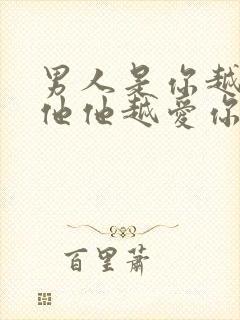 男人是你越
他他越爱你
百里萧